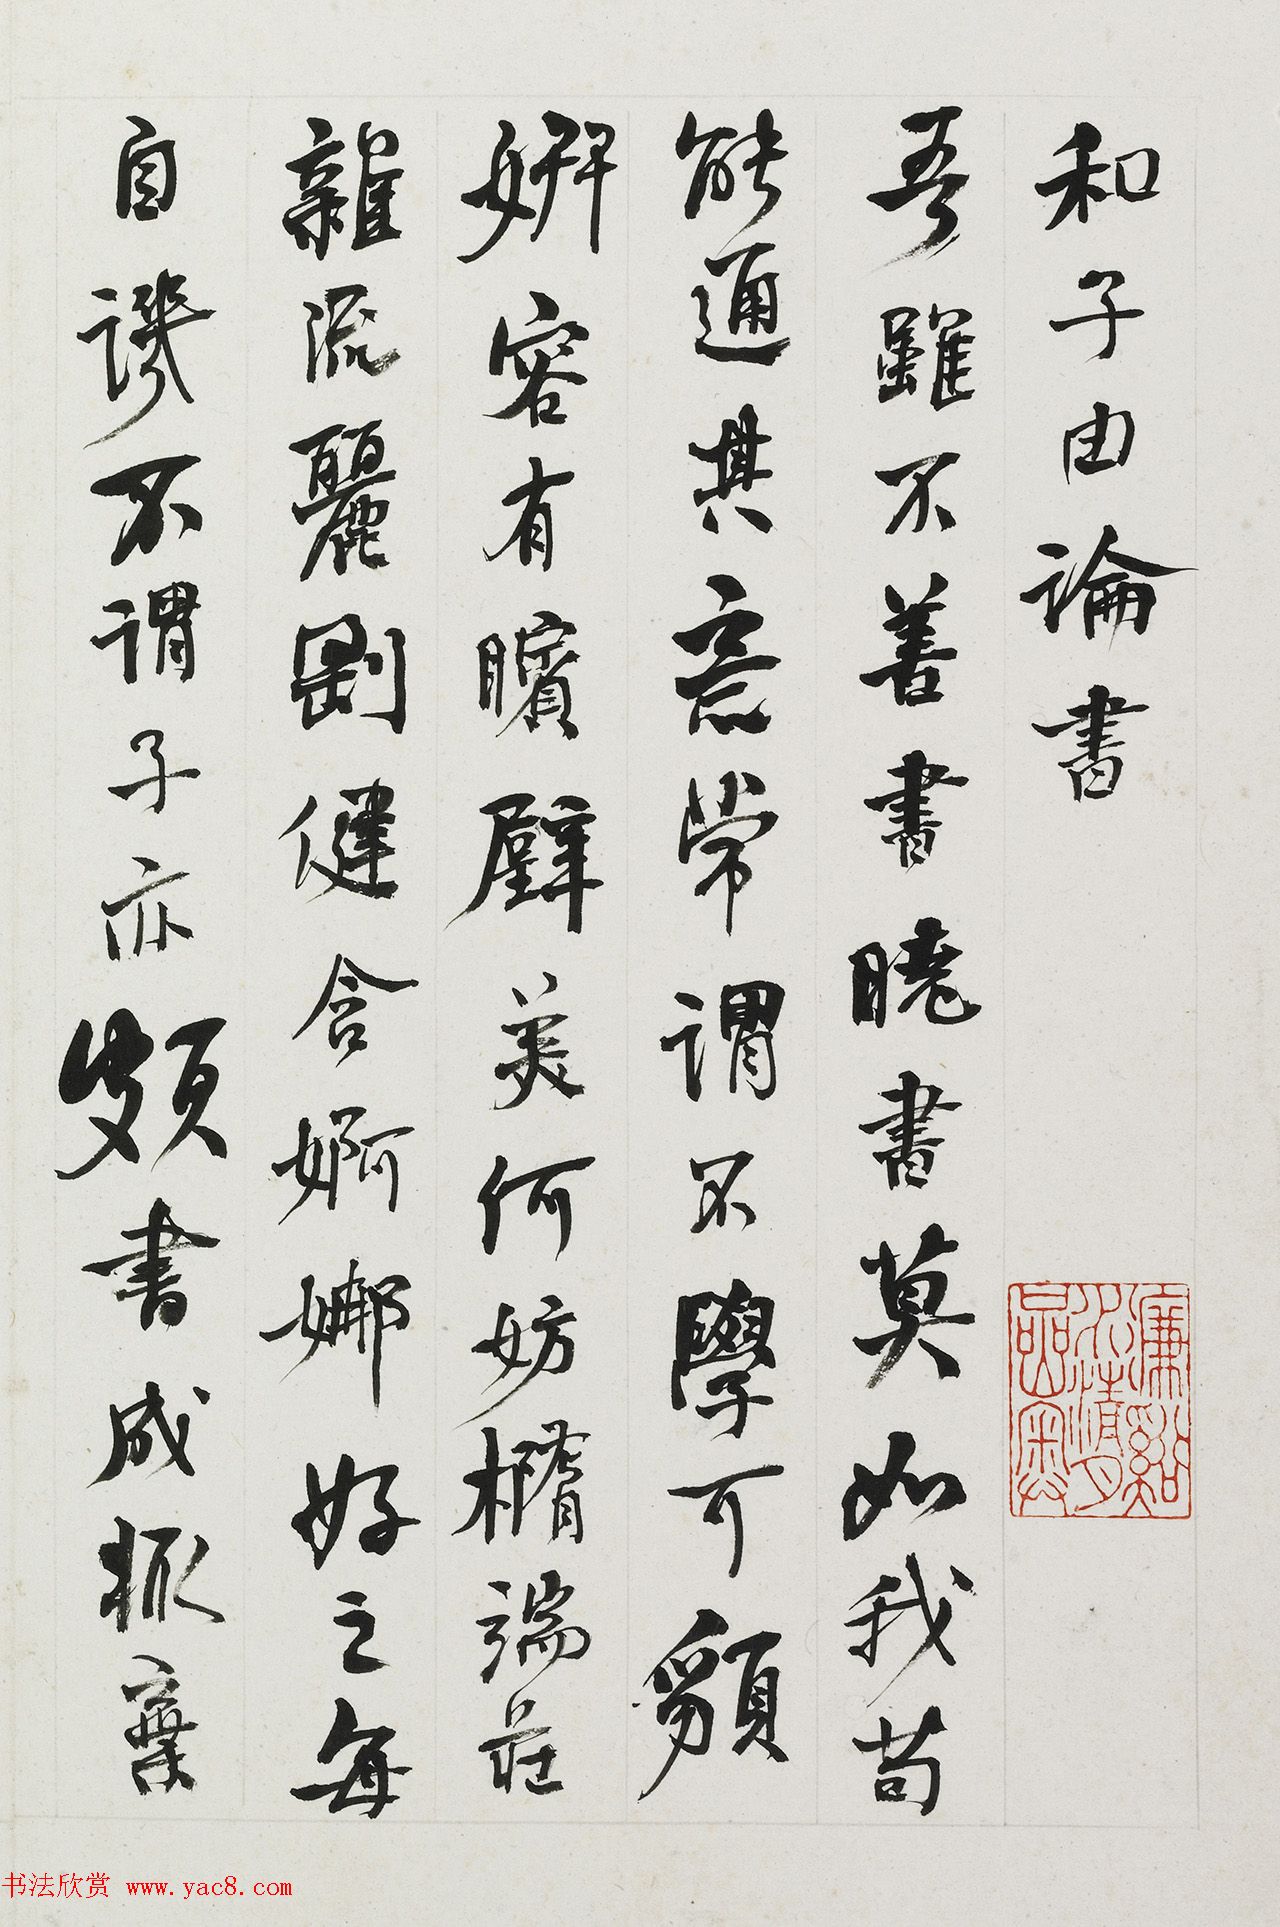 和子由論書
吾雖不善書曉書莫如我苟
能通其意常謂不學可貌
妍容有矉璧美何妨橢端莊
雜流麗剛健含婀娜好之每
自譏不謂子亦頗書成輒棄
书法欣赏 www.yac8.com